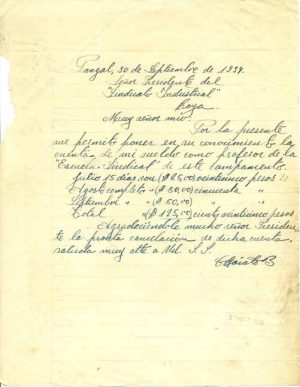 Pangal, 30 de Septiembre de 1939.
Señor Presidente del
"Sindicato Industrial"
Coya.
Muy señor mío:
Por la presente
me permito poner en su conocimiento la
cuenta de mi sueldo como profesor de la
"Escuela Sindical" de este campamento.
Julio 15 días, son ($ 25,00) veinticinco pesos
Agosto completo " ($ 50,00) cincuenta "
Septiembre " " ($ 50,00) " "
Total " ($ 125,00) ciento veinticinco pesos
Agradeciéndole mucho señor Presiden
te la pronta cancelación de dicha cuenta,
saluda muy atte a Ud. S. S.